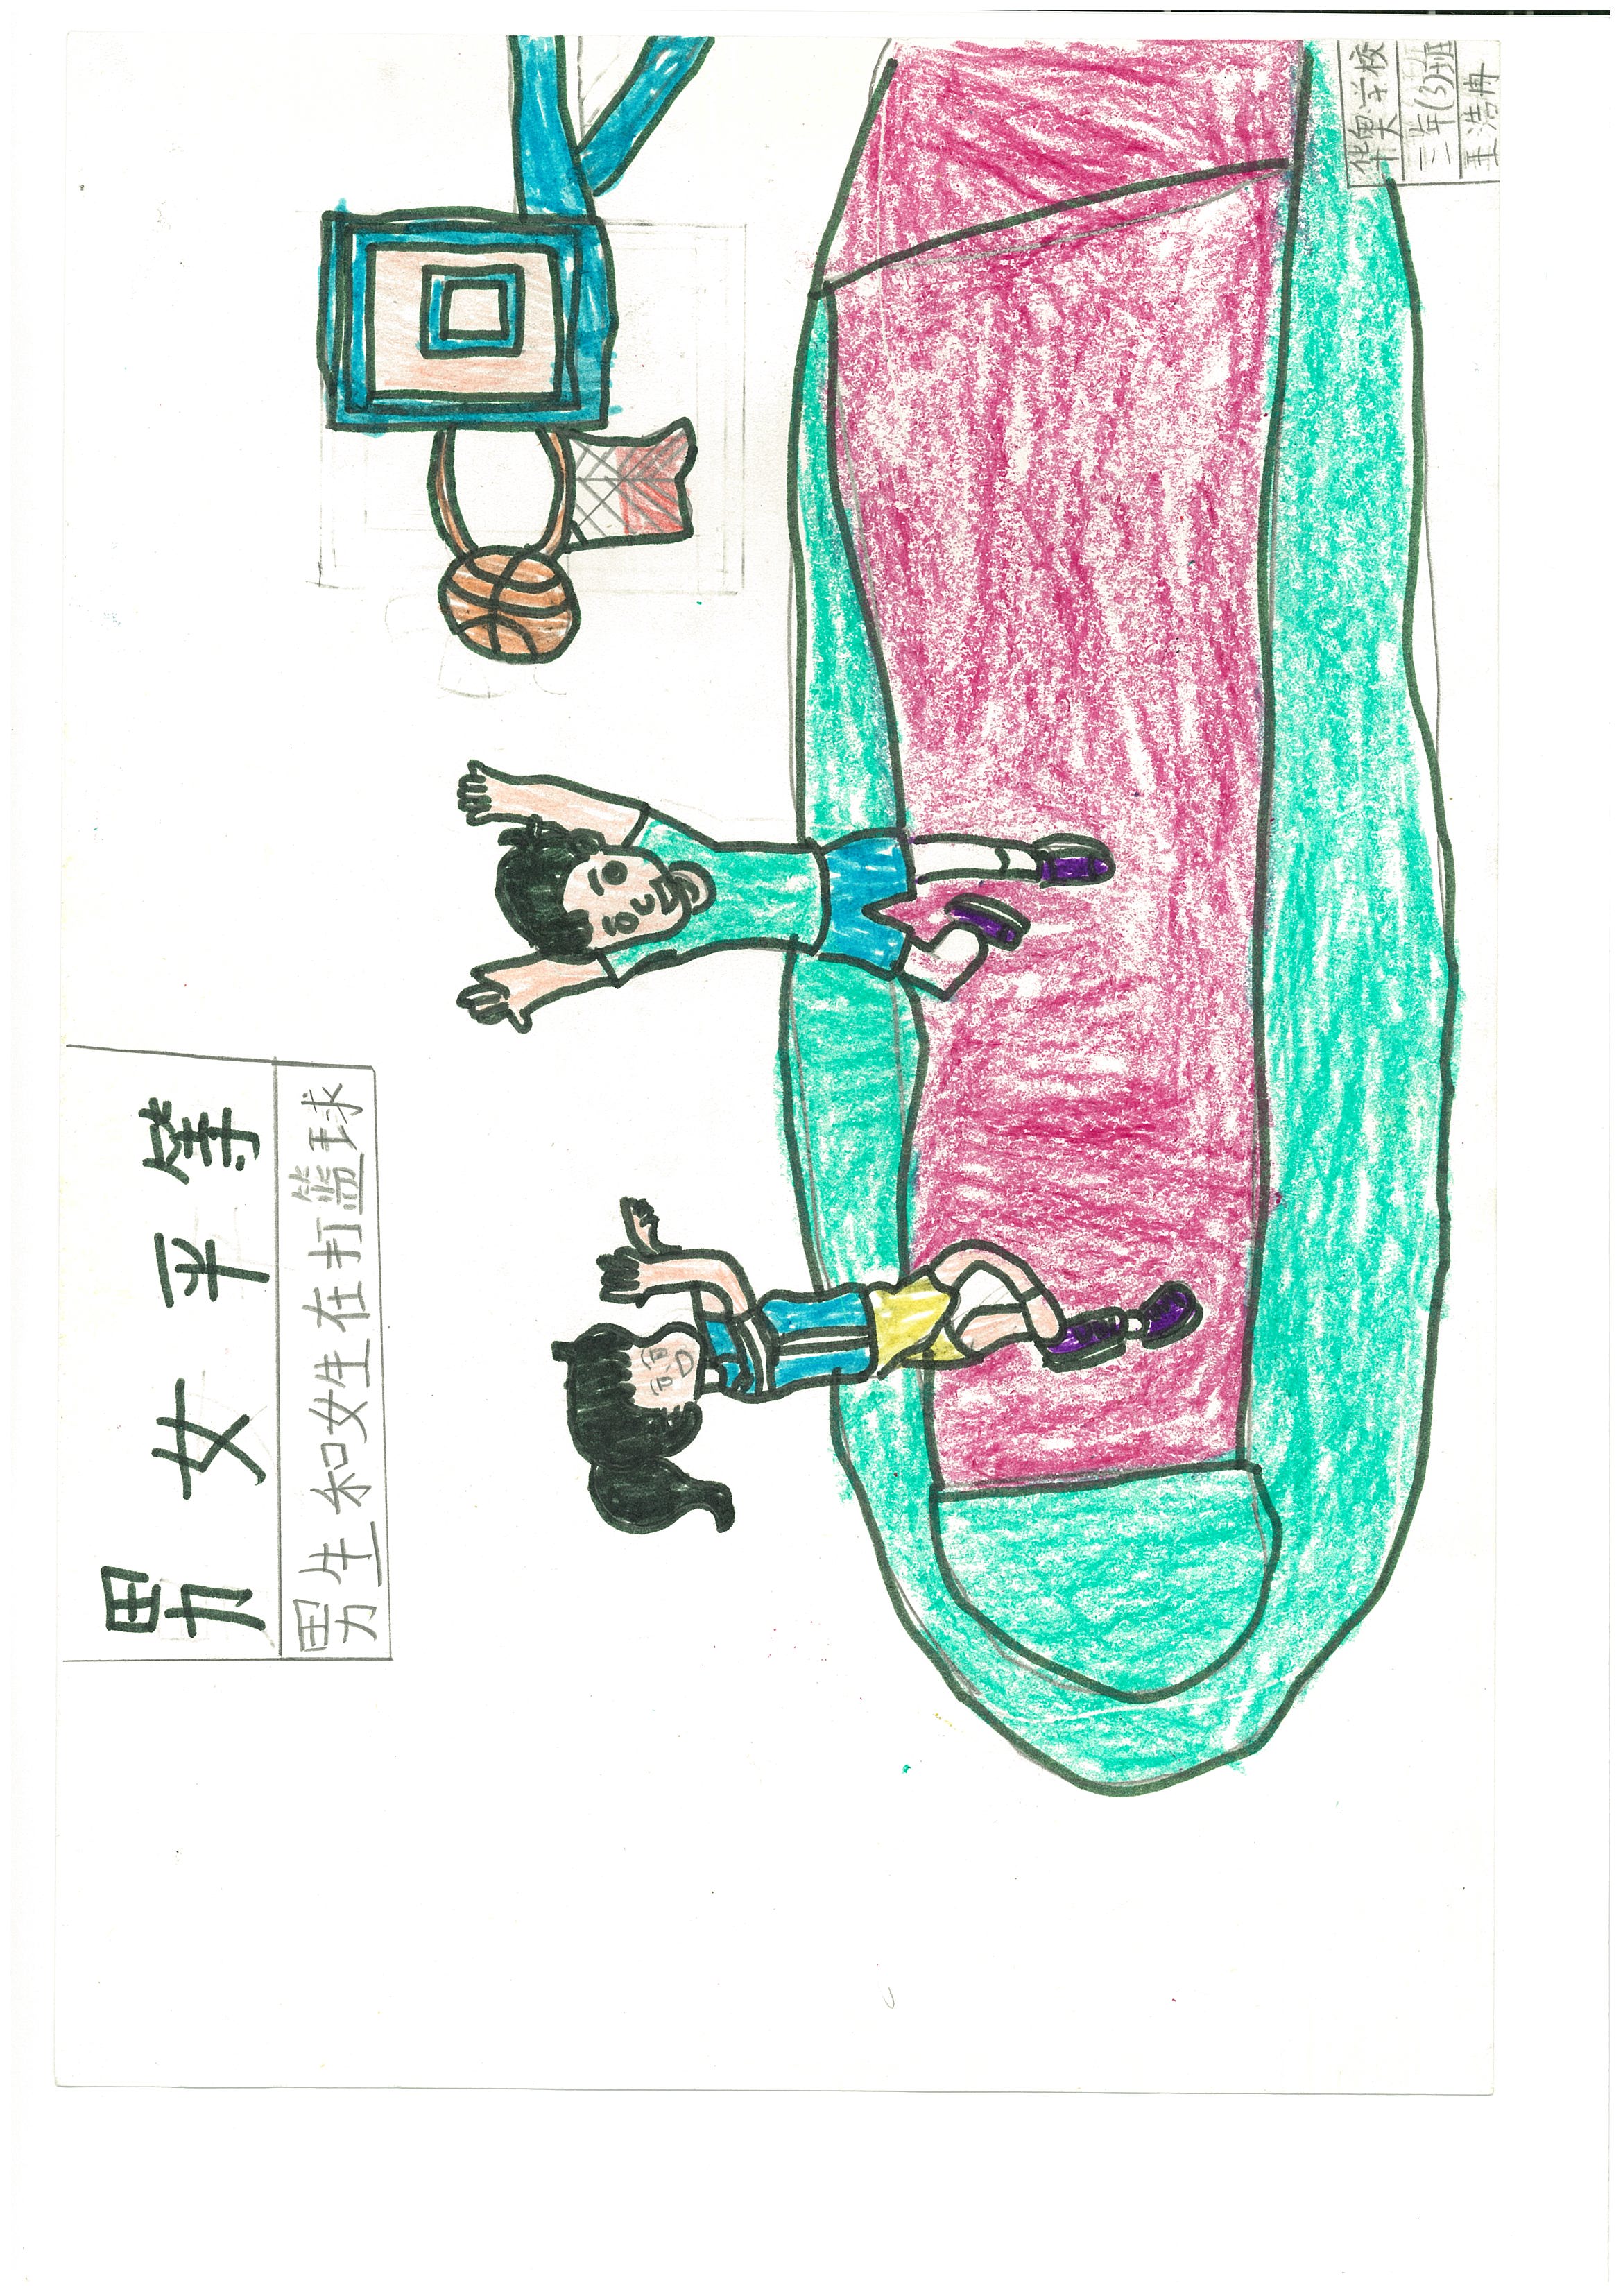 男女平等
男生和女生在打篮球
华奥学校
三年(3)班
王浩冉